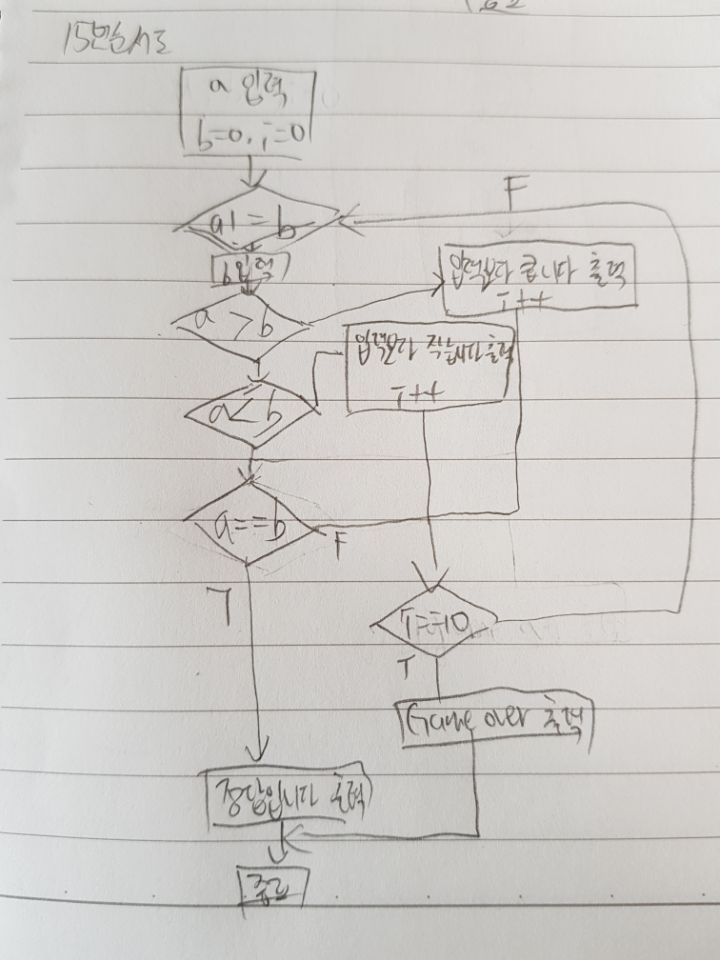 15번순서도
a 입력
b=0, i=0
a != b
F
b입력
입력값보다 큽니다 출력
i++
a > b
입력값보다 작습니다 출력
i++
a < b
a==b
F
T
i==10
T
Game over 출력
정답입니다 출력
종료